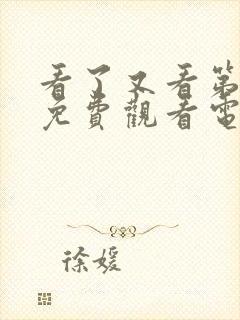 看了又看第
免費觀看電
徐媛